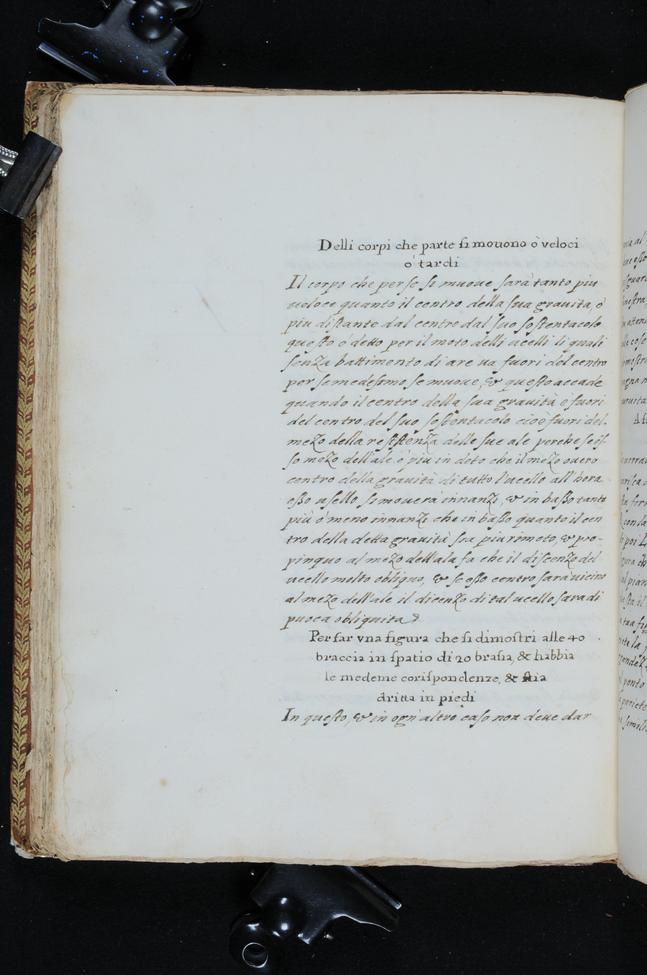 Delli corpi che parte si mouono ò veloci
ò tardi
Il corpo che per se si muoue sarà tanto piu
veloce quanto il centro della sua grauità, è
piu distante dal centro dal suo sostentacolo
questo è detto per il moto delli ucelli li quali
senza battimento di are ua fuori del centro
per se medesimo se muoue, & questo accade
quando il centro della sua grauità è fuori
del centro del suo sostentacolo cioè fuori del
mezo della resistenza delle sue ale perche se is-
so mezo dell'ale è piu in deto che il mezo ouero
centro della grauità di tutto l'ucello all'hora
esso usello si mouerà innanzi, & in basso tanto
più ò meno innanzi che in basso quanto il cen
tro della detta grauità sia piu rimoto, & pro-
pinquo al mezo dell'ala fa che il discenzo del
ucello molto obliquo, & se esso centro sarà uicino
al mezo dell'ale il dicenzo di tal ucello sara di
puoca obliquita
Per far vna figura che si dimostri alle 40
braccia in spatio di 20 brasia, & habbia
le medeme corispondenze, & stia
dritta in piedi
In questo, & in ogn'altro caso non deue dar